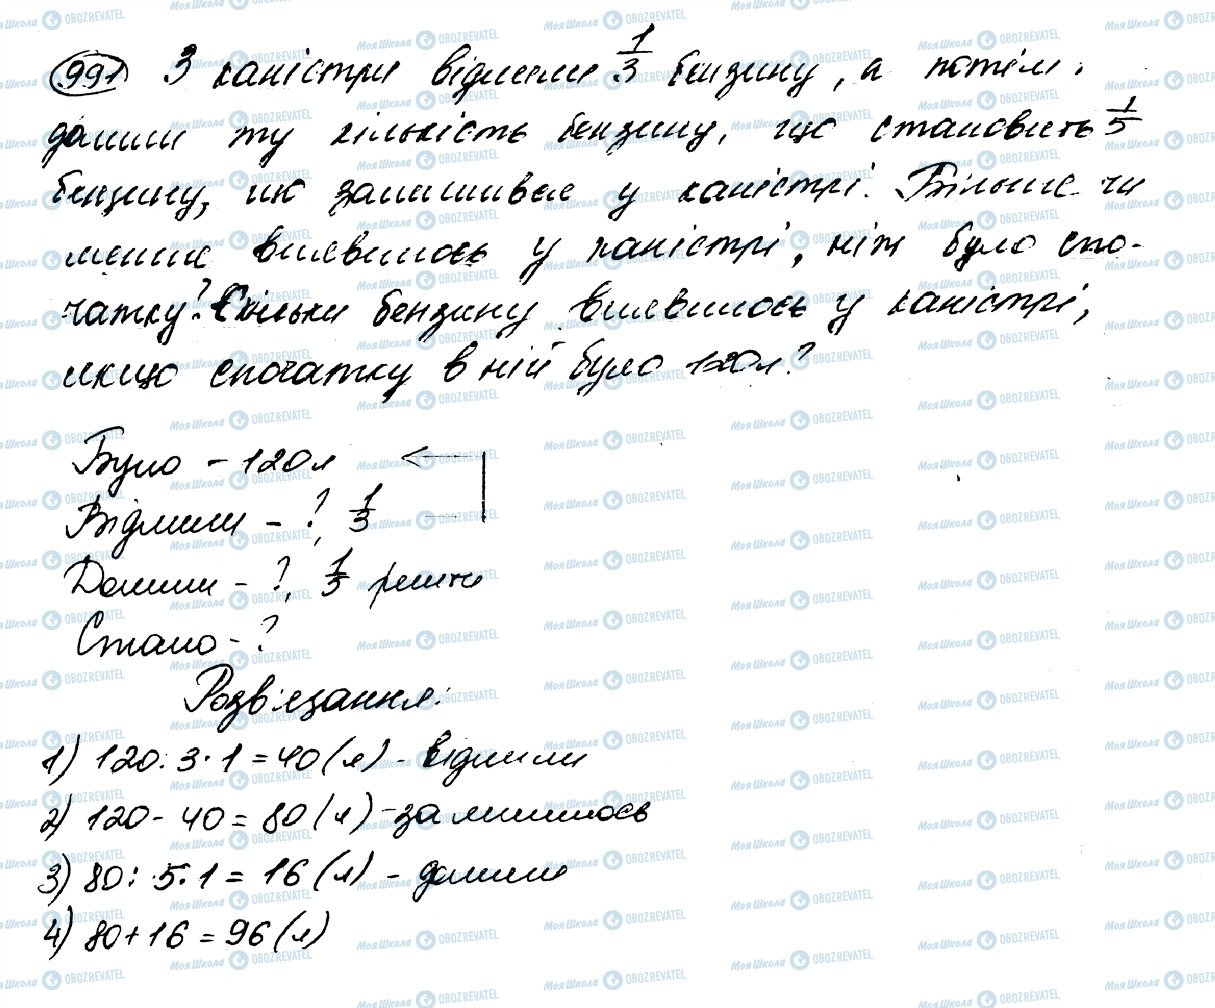 991 З каністри відлили 1/3 бензину, а потім
долили ту кількість бензину, що становить 1/5
бензину, що залишився у каністрі. Більше чи
менше виявилось у каністрі, ніж було спо-
чатку? Скільки бензину виявилось у каністрі,
якщо спочатку в ній було 120л?
Було – 120л
Відлили – ?, 1/3
Долили – ?, 1/5 решти
Стало – ?
Розв'язання:
1) 120 : 3 · 1 = 40 (л) – відлили
2) 120 – 40 = 80 (л) – залишилось
3) 80 : 5 · 1 = 16 (л) – долили
4) 80 + 16 = 96 (л)